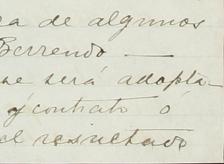 ca de algunos
Berrendo —
ue será adopta-
y contrato ó
el resultado